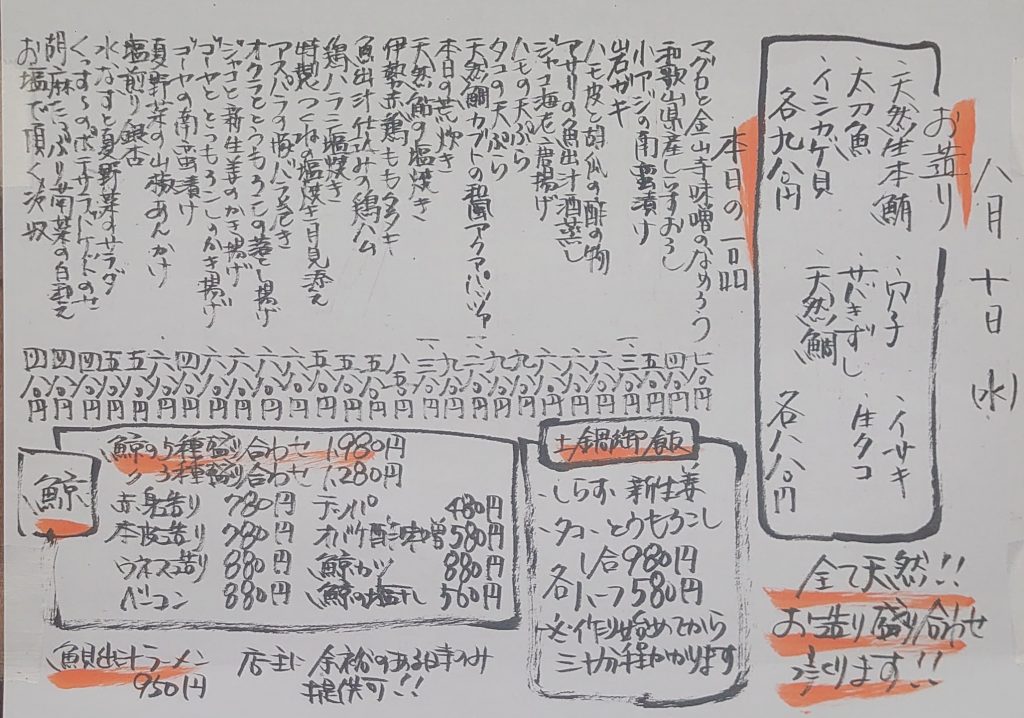 八月十日(水)
お造り
・天然生本鮪
・太刀魚
・インカゲ貝
各九八〇円
・穴子
・せいきずし
・天然鯛
・イサキ
・生タコ
各八八〇円
全て天然!!
お造り盛り合わせ
つくります!!
本日の一品
マグロと金山寺味噌のなめろう 七八〇円
和歌山県産しらすおろし 四八〇円
小アジの南蛮漬け 五八〇円
岩ガキ 一、三八〇円
ハモ皮と胡瓜の酢の物 六八〇円
アサリの魚出汁酒蒸し
ジャコ海老唐揚げ 六八〇円
ハモの天ぷら 九八〇円
タコの天ぷら 九八〇円
天然鯛カブトの和風アクアパッツァ
本日の荒炊き 九八〇円
天然鮎の塩焼き 一、三八〇円
伊勢赤鶏ももタタキ 八五〇円
魚出汁仕込みの鶏ハム 五八〇円
鶏ハラミ塩焼き 五八〇円
特製つくねの塩焼き月見添え 五八〇円
アスパラの豚バラ巻き 六八〇円
オクラととうもろこしの落とし揚げ 六八〇円
ジャコと新生姜のかき揚げ 六八〇円
ゴーヤととうもろこしのかき揚げ 六八〇円
ゴーヤの南蛮漬け 四八〇円
夏野菜の山椒あんかけ
塩煎り銀杏 五八〇円
水なすと夏野菜のサラダ 五八〇円
くっすぅのポテサラ
胡麻たっぷり 菜の白和え 四八〇円
お塩で頂く冷奴 四八〇円
鯨
鯨の5種盛り合わせ 1,980円
〃 3種盛り合わせ 1,280円
赤身造り 780円
本皮造り 780円
ウネス造り 880円
ベーコン 880円
テッパ 480円
オバケ酢味噌 580円
鯨カツ 880円
鯨の塩干し 560円
土鍋御飯
・しらす、新生姜
・タコ、とうもろこし
各 1合980円
ハーフ580円
※作り始めてから
三十分程かかります
魚出汁ラーメン
950円
店主に余裕のある時のみ
提供可!!